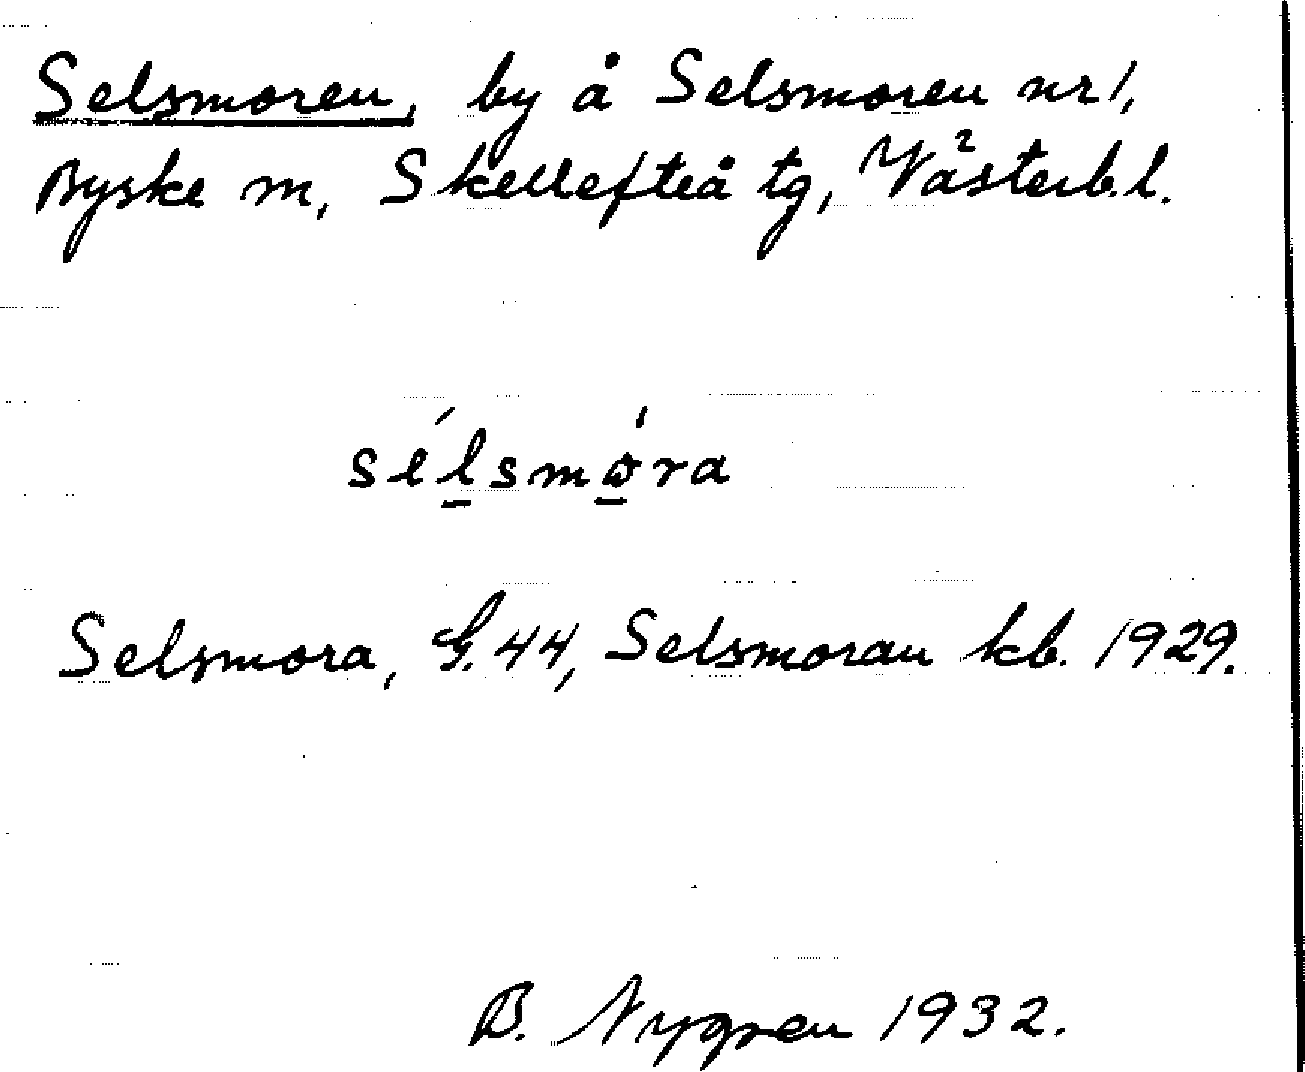 Selsmoren, by å Selsmoren nr 1,
Byske sn, Skellefteå tg, Västerb.l.
sélsmóra
Selsmora, G. 44, Selsmoran kb. 1929.
B. Nygren 1932.